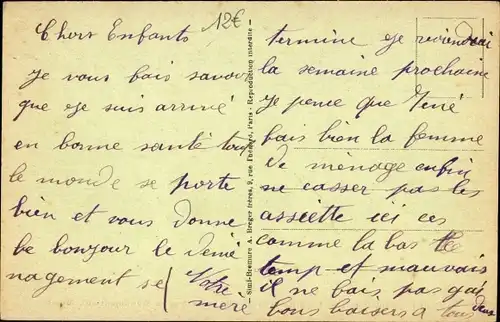 12€
Chers Enfants
je vous fais savoir
que je suis arrivé
en bonne santé tout
le monde se porte
bien et vous donne
le bonjour le demé
nagement se
Votre
mere
Simi-Bromure A. Breger frères, 9, rue Thénard, Paris - Reproduction interdite
termine je reviendrai
la semaine prochaine
je pence que René
fais bien la femme
de ménage enfin
ne casser pas les
assiette ici ces
comme la bas le
temp et mauvais
il ne fais pas gai
bons baisers a tous
deux